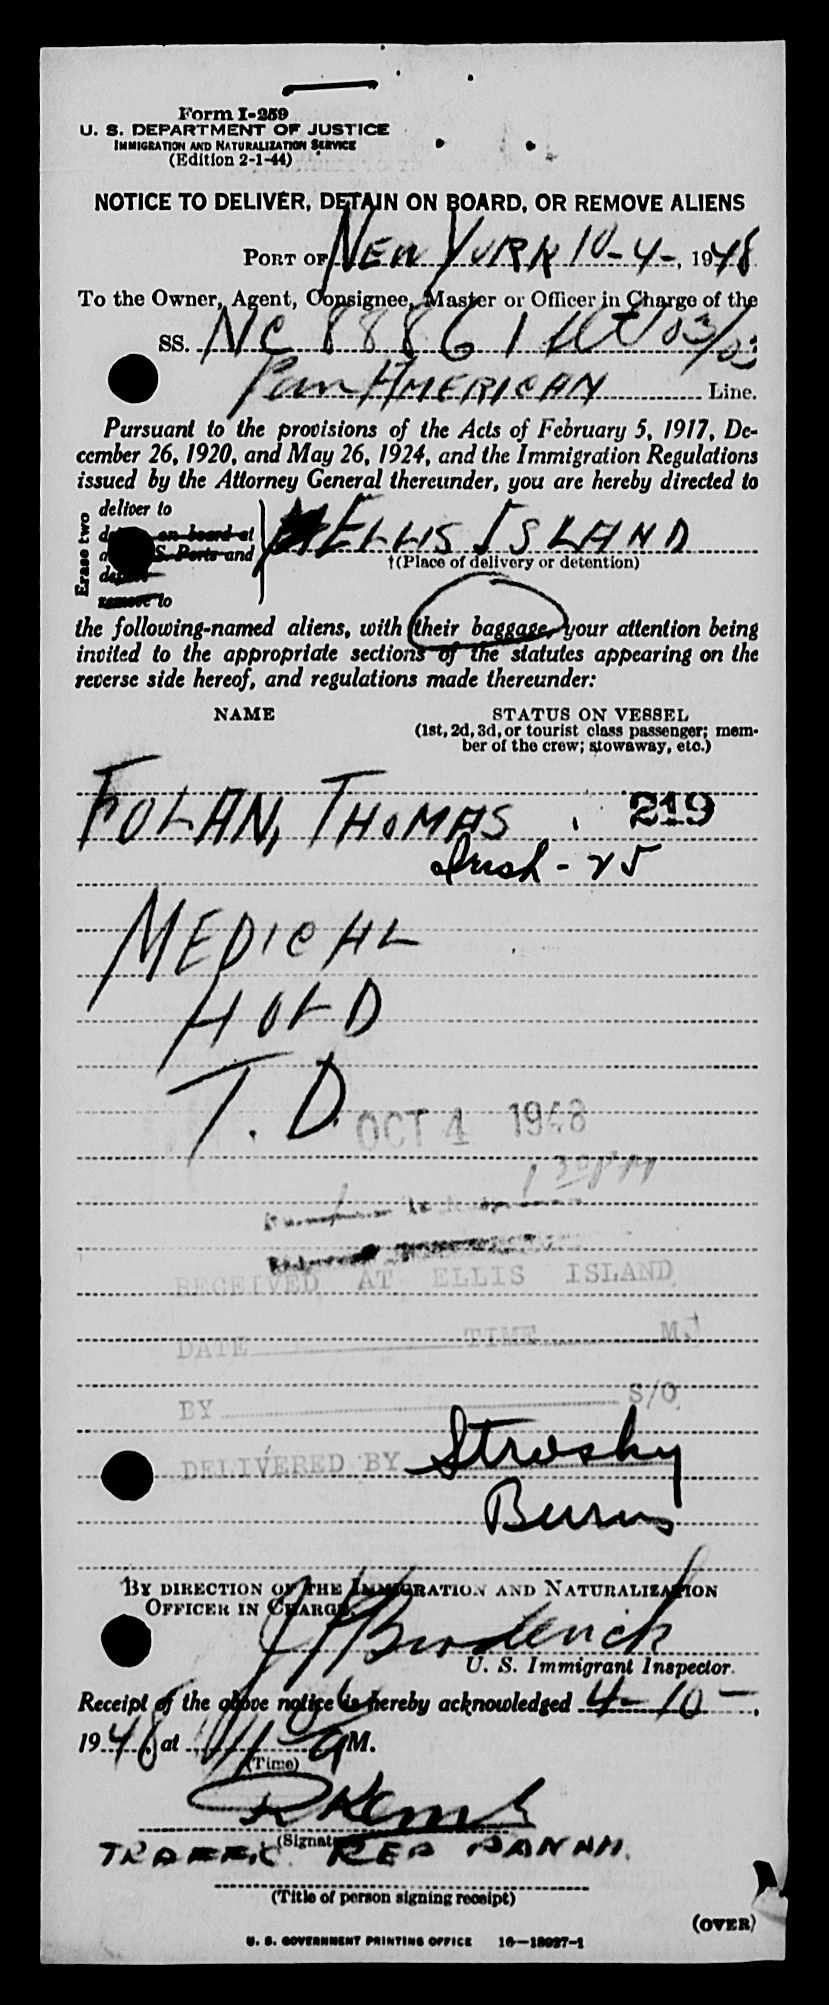 Form I-259
U. S. DEPARTMENT OF JUSTICE
IMMIGRATION AND NATURALIZATION SERVICE
(Edition 2-1-44)
NOTICE TO DELIVER, DETAIN ON BOARD, OR REMOVE ALIENS
PORT OF NEW YORK 10-4-, 1948
To the Owner, Agent, Consignee, Master or Officer in Charge of the
SS. NC 88861
Pan AMERICAN Line.
Pursuant to the provisions of the Acts of February 5, 1917, De-
cember 26, 1920, and May 26, 1924, and the Immigration Regulations
issued by the Attorney General thereunder, you are hereby directed to
Erase two
deliver to
on board at
S. Ports and
remove to
ELLIS ISLAND
†(Place of delivery or detention)
the following-named aliens, with their baggage, your attention being
invited to the appropriate sections of the statutes appearing on the
reverse side hereof, and regulations made thereunder:
NAME STATUS ON VESSEL
(1st, 2d, 3d, or tourist class passenger; mem-
ber of the crew; stowaway, etc.)
FOLAN, THOMAS 219
Irish - 25
MEDICAL
HOLD
T. D.
OCT 4 1948
1 30 PM
RECEIVED AT ELLIS ISLAND
DATE TIME M.
BY S/O
DELIVERED BY Strosky
Burns
BY DIRECTION OF THE IMMIGRATION AND NATURALIZATION
OFFICER IN CHARGE
Broderick
U. S. Immigrant Inspector.
Receipt of the above notice is hereby acknowledged 4-10-,
1948, at AM.
(Time)
(Signature)
TRAFFIC REP PANAM.
(Title of person signing receipt)
(OVER)
U. S. GOVERNMENT PRINTING OFFICE 16—18927-1